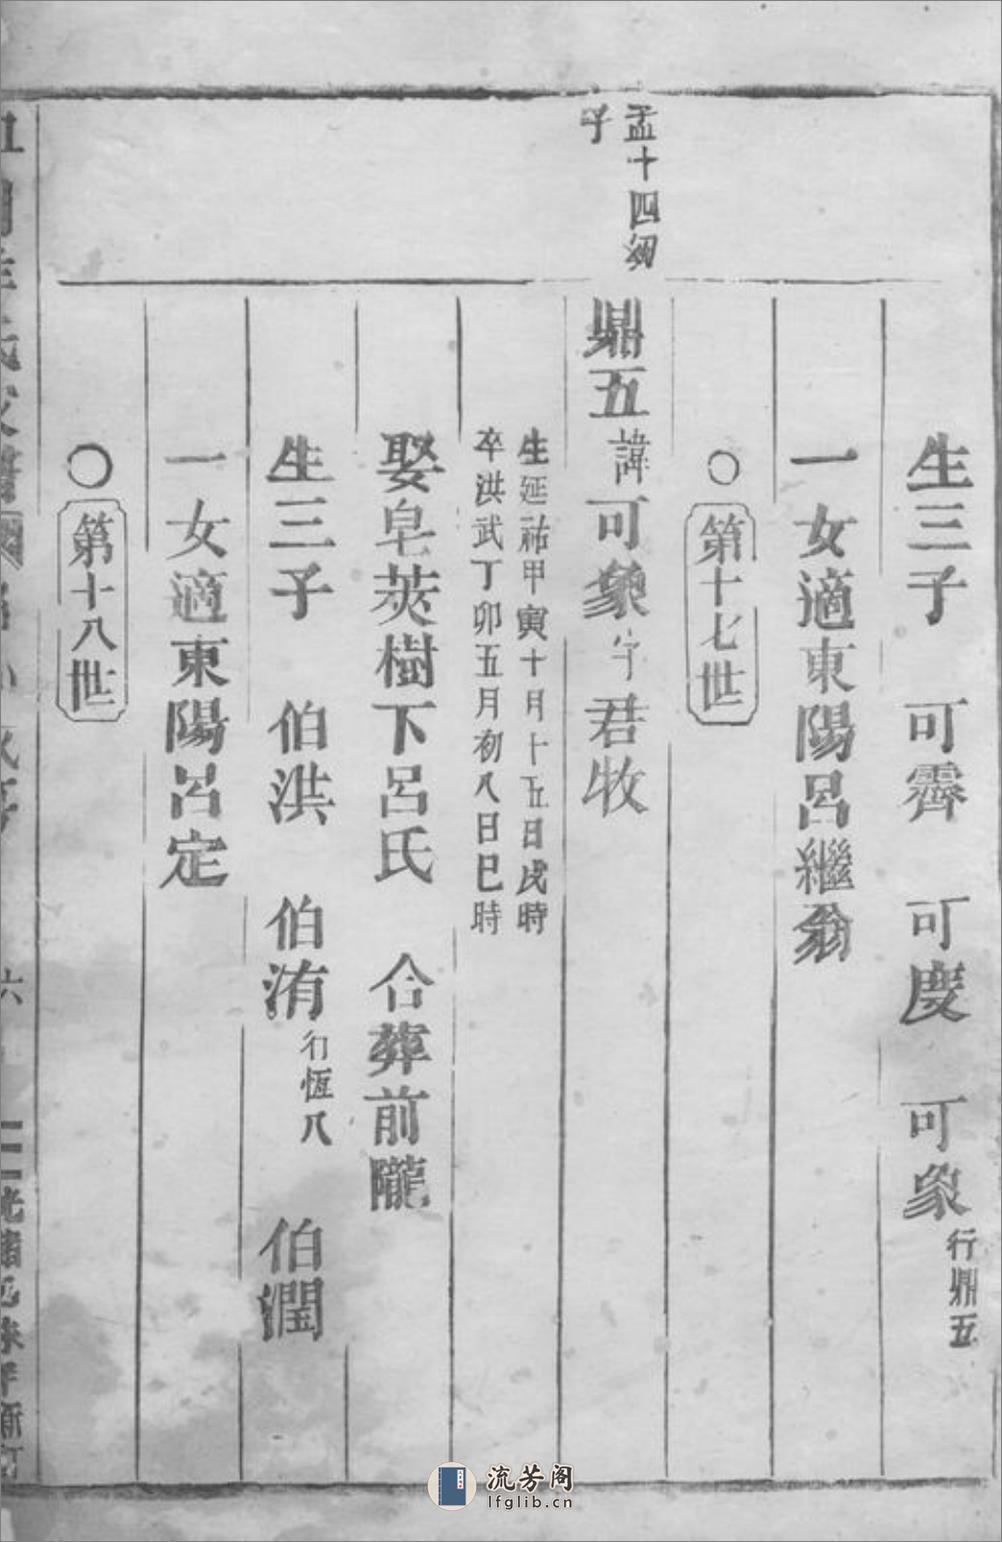 生三子　可霽　可度　可象行鼎五
一女適東陽呂繼翁
○第十七世
孟十四幼
子
鼎五諱可象字君牧
生延祐甲寅十月十五日戌時
卒洪武丁卯五月初八日巳時
娶皂莢樹下呂氏　合葬前隴
生三子　伯洪　伯洧行恆八　伯潤
一女適東陽呂定
○第十八世
六
流芳阁
lfglib.cn